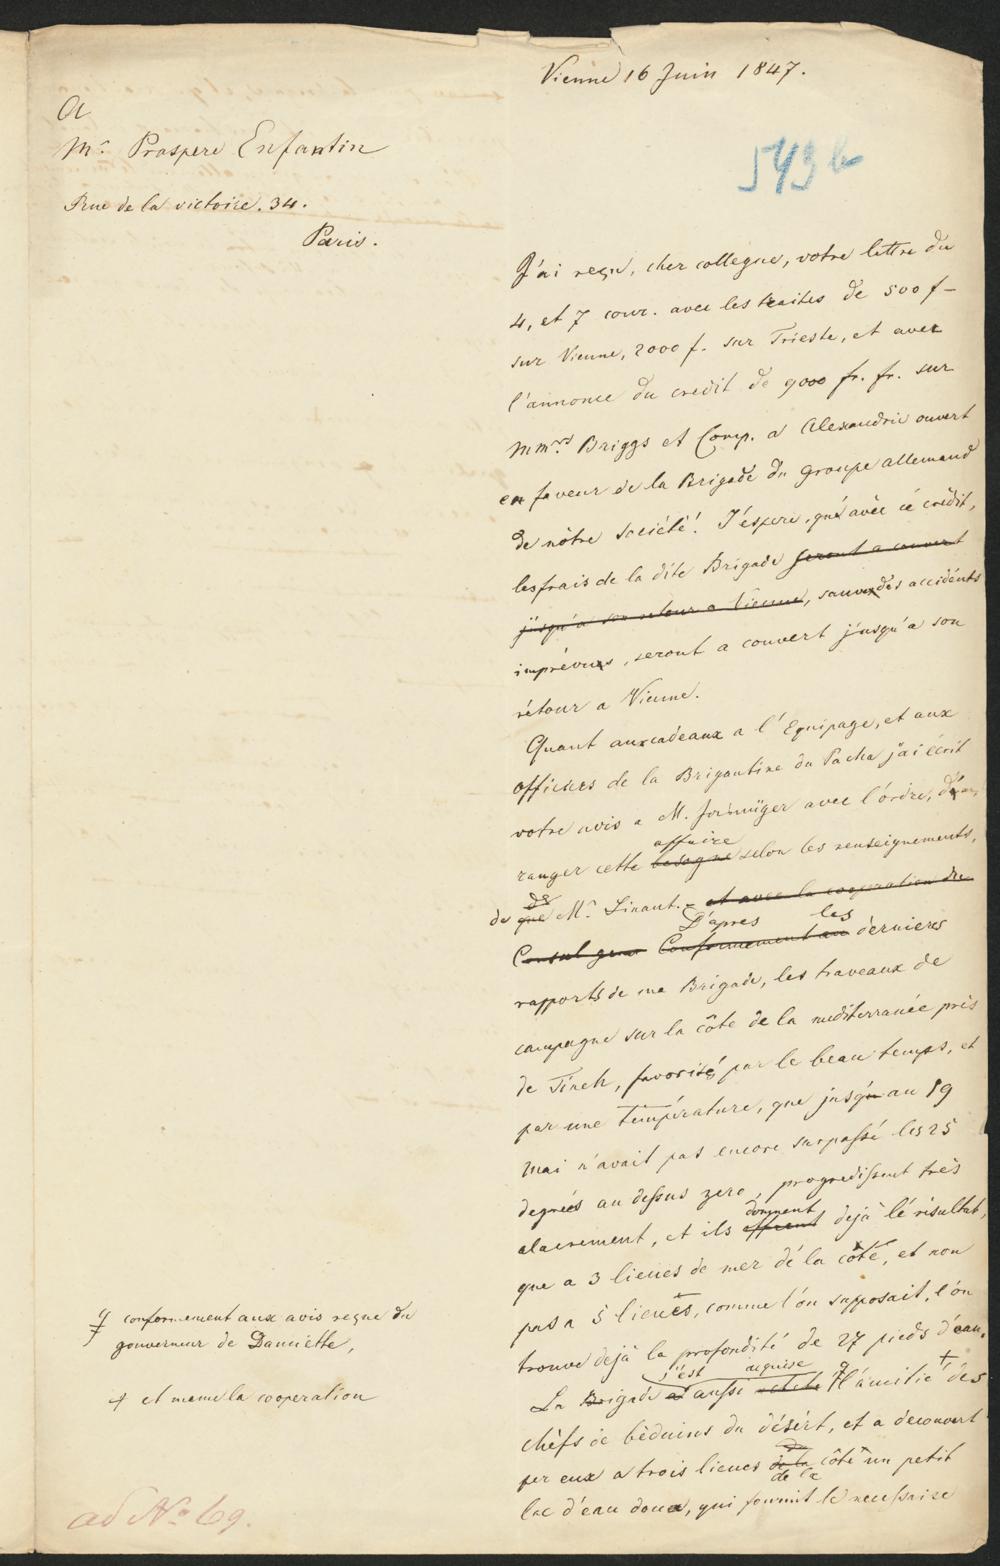 Vienne 16 Juin 1847.
A
Mr. Prospere Enfantin
Rue de la victoire. 34.
Paris.
543 b
J'ai reçu, cher collegue, votre lettre du
4, et 7 cour. avec les traites de 500 f –
sur Vienne, 2000 f. sur Trieste, et avec
l'annonce du credit de 9000 fr. fr. sur
Mmrs Briggs et Comp. a Alexandrie ouvert
en faveur de la Brigade du groupe allemand
de nôtre société! J'espere, que avec ce crédit,
les frais de la dite Brigade seront a couvert
jusqu'a son retour a Vienne, sauve des accidénts
imprévus, seront a couvert j'usqu'a son
rétour a Vienne.
Quant aux cadeaux a l'Equipage, et aux
officiers de la Brigantine du Pacha j'ai écrit
votre avis a M. avec l'ordre,
affaire
ranger cette besogne selon les renseignements,
de
de que Mr. Linant. – et avec la cooperation du
D'apres les
Consul gener Conformement au derniers
rapports de ma Brigade, les traveaux de
campagne sur la côte de la mediterranée près
de Tineh, favorisés par le beau temps, et
par une température, que jusqu'au 19
mai n'avait pas encore surpassé les 25
degrés au dessus zero, progredissent très
donnent
alacrement, et ils offrent dejà lé résultat,
que a 3 lieues de mer dé la côté, et non
pas a 5 lieues, comme l'on supposait, l'on
trouve dejà la profondité de 27 pieds d'eau.
s'est acquise
La Brigade a aussi l'amitié des
chéfs de béduins du désért, et a decouvert
per eux a trois lieues de la côté un petit
de la
lac d'eau douce, qui fournit le necessaire
conformement aux avis reçne du
gouverneur de Damiette,
+ et meme la cooperation
ad No 69.